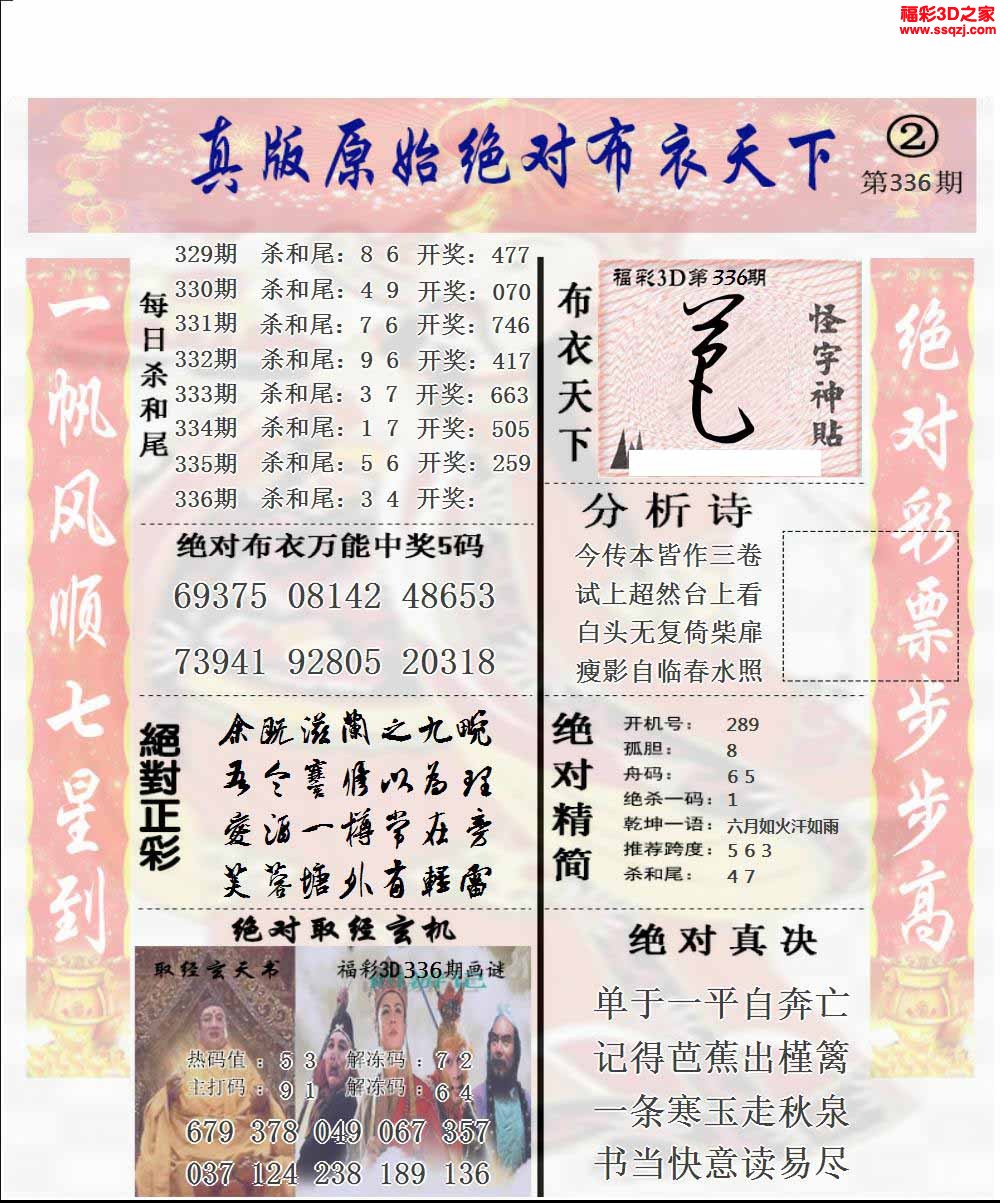 福彩3D之家
www.ssqzj.com
真版原始绝对布衣天下
②
第336期
一帆风顺七星到
每日杀和尾
329期 杀和尾：8 6 开奖：477
330期 杀和尾：4 9 开奖：070
331期 杀和尾：7 6 开奖：746
332期 杀和尾：9 6 开奖：417
333期 杀和尾：3 7 开奖：663
334期 杀和尾：1 7 开奖：505
335期 杀和尾：5 6 开奖：259
336期 杀和尾：3 4 开奖：
绝对布衣万能中奖5码
69375 08142 48653
73941 92805 20318
絕對正彩
余既滋蘭之九畹
吾令蹇修以為理
愛酒一樽常在旁
芙蓉塘外有輕雷
绝对取经玄机
取经玄天书
福彩3D336期画谜
热码值：5 3 解冻码：7 2
主打码：9 1 解冻码：6 4
679 378 049 067 357
037 124 238 189 136
布衣天下
福彩3D第336期
怪字神貼
分析诗
今传本皆作三卷
试上超然台上看
白头无复倚柴扉
瘦影自临春水照
绝对精简
开机号： 289
孤胆： 8
舟码： 6 5
绝杀一码：1
乾坤一语：六月如火汗如雨
推荐跨度：5 6 3
杀和尾： 4 7
绝对真决
单于一平自奔亡
记得芭蕉出槿篱
一条寒玉走秋泉
书当快意读易尽
绝对彩票步步高